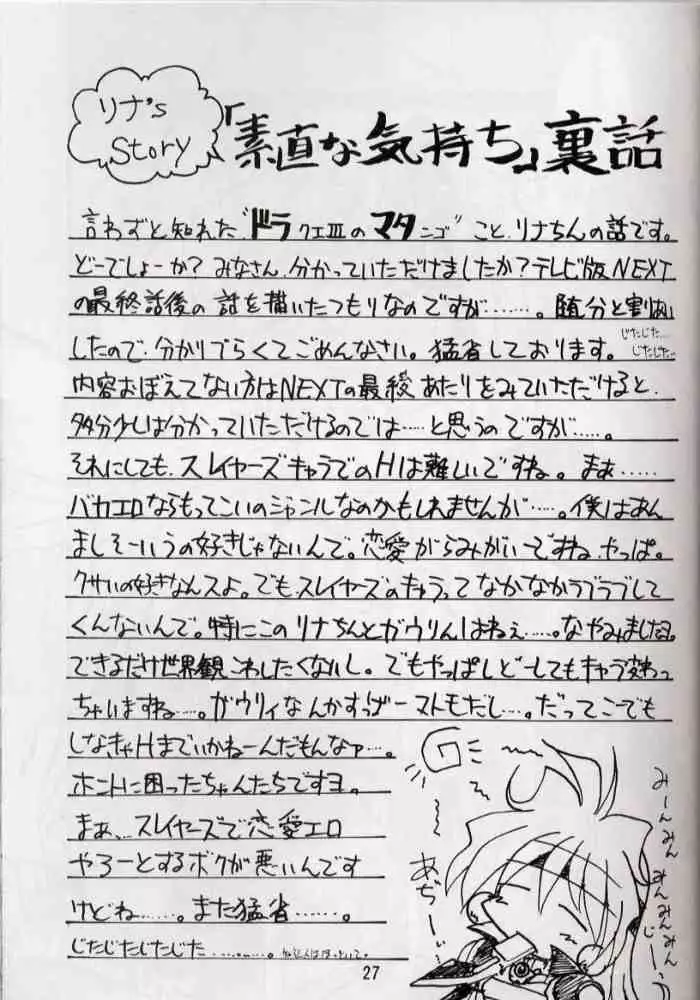 リナ's
Story
「素直な気持ち」裏話
言わずと知れた“ドラクエⅢのマタンゴ”こと、リナちんの話です。
どーでしょーか？みなさん、分かっていただけましたか？テレビ版NEXT
の最終話後の話を描いたつもりなのですが……。随分と割愛
したので、分かりづらくてごめんなさい。猛省しております。
じたじた…
じたじた…
内容おぼえてない方はNEXTの最終あたりをみていただけると、
多分少しは分かっていただけるのでは…と思うのですが……。
それにしても、スレイヤーズキャラでのHは難しいですね。まぁ……
バカエロならもってこいのジャンルなのかもしれませんが……。僕はあん
ましそーいうの好きじゃないんで。恋愛がらみがいーですね、やっぱ。
クサいの好きなんスよ。でもスレイヤーズのキャラってなかなかラブラブして
くんないんで。特にこのリナちんとガウりんはねぇ……。なやみました。
できるだけ世界観こわしたくないし。でもやっぱしどーしてもキャラ変わっ
ちゃいますね……。ガウリィなんかすげーマトモだし…。だってこーでも
しなきゃHまでいかねーんだもんなァ…。
ホントに困ったちゃんたちですヨ。
まぁ、スレイヤーズで恋愛エロ
やろーとするボクが悪いんです
けどね……。また猛省……。
じたじたじたじた………。
みーんみん
みんみんみん
じーっ
あぢーぃ
27